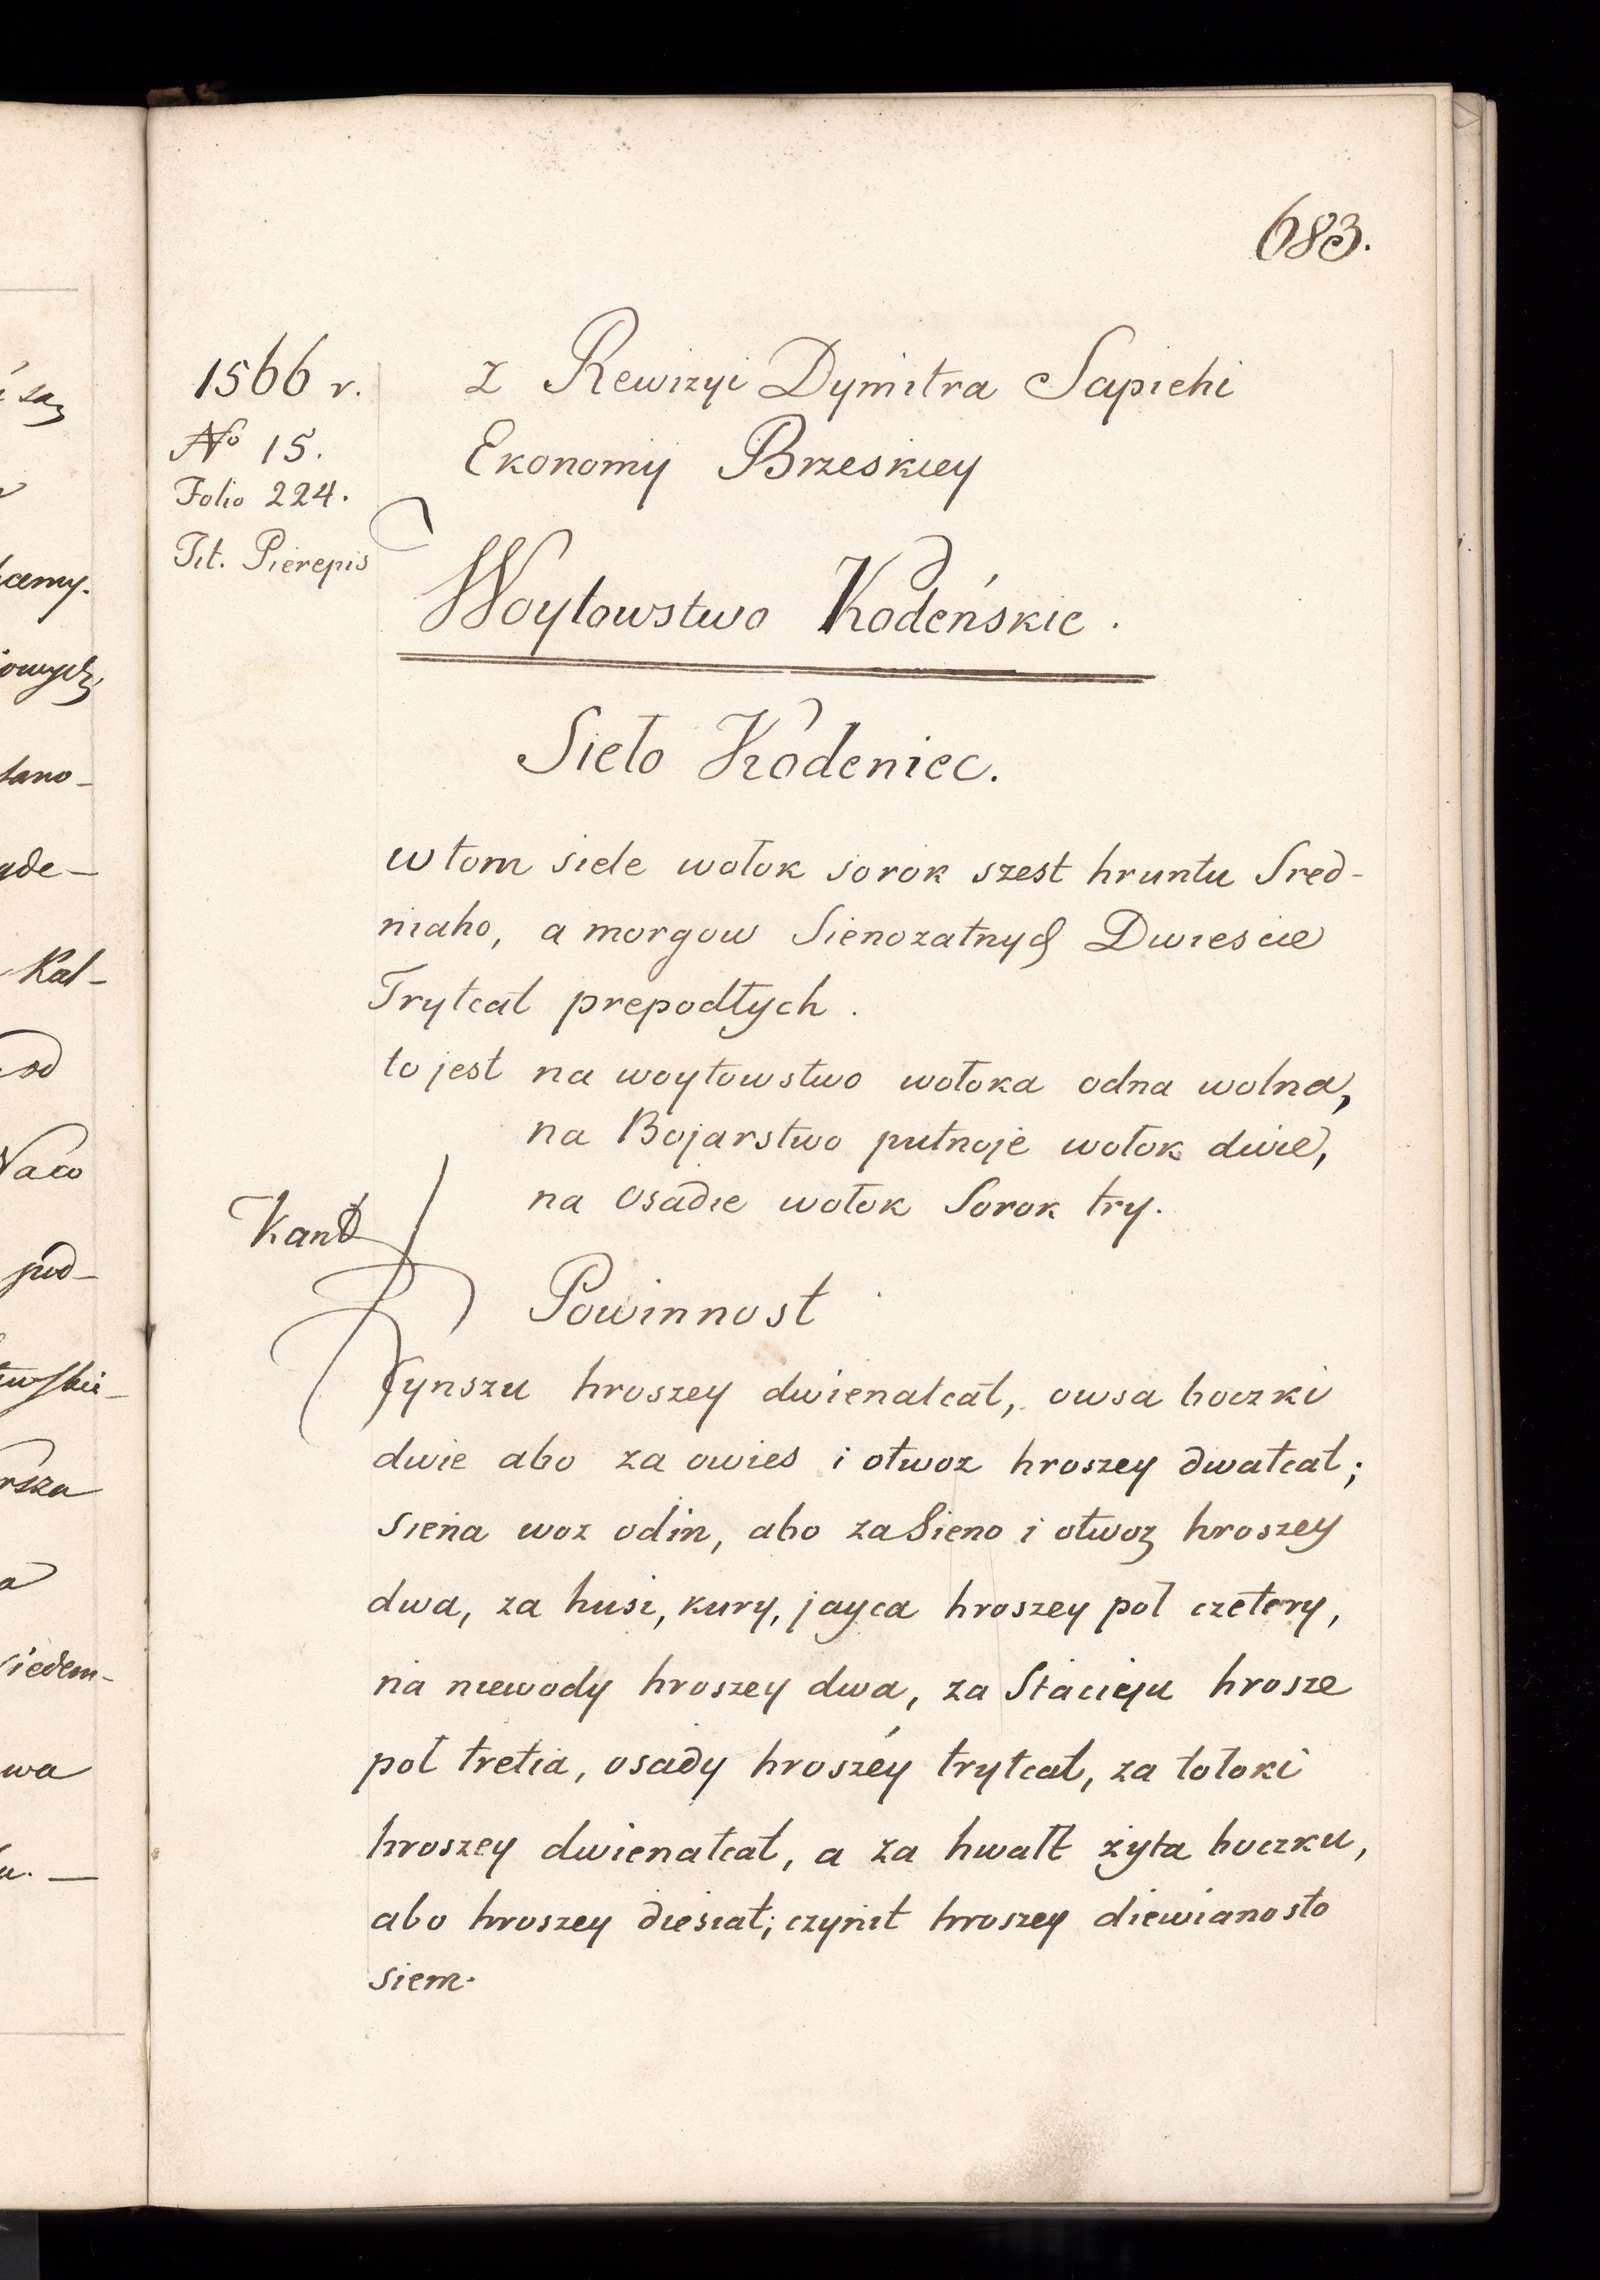 683.
1566 r.
No 15.
Folio 224.
Tit. Pierepis
z Rewizyi Dymitra Sapiehi
Ekonomij Brzeskiey
Woytowstwo Kodeńskie.
Sieło Kodeniec.
w tom siele wołok sorok szest hruntu Sred-
niaho, a morgow Sienozatnych Dwiescie
Trytcat prepodłych.
to jest na woytowstwo wołoka odna wolna,
na Bojarstwo putnoje wołok dwie,
na osadie wołok Sorok try.
Powinnost
Cynszu hroszey dwienatcat, owsa boczki
dwie abo za owies i otwoz hroszey dwatcat;
siena woz odin, abo za Sieno i otwoz hroszey
dwa, za husi, kury, jayca hroszey poł czetery,
na niewody hroszey dwa, za Stacieju hrosze
poł tretia, osady hroszéy trytcat, za tołoki
hroszey dwienatcat, a za hwałt żyta boczku,
abo hroszey diesiat; czynit hroszey diewianosto
siem.
ścemy.
gde-
Kal-
pod-
rsza
siedem-
wa